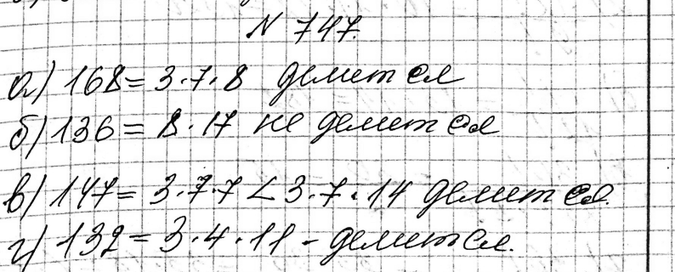 N 747.
а) 168 = 3·7·8 делится
б) 136 = 8·17 не делится
в) 147 = 3·7·7 < 3·7·14 делится.
г) 132 = 3·4·11 – делится.